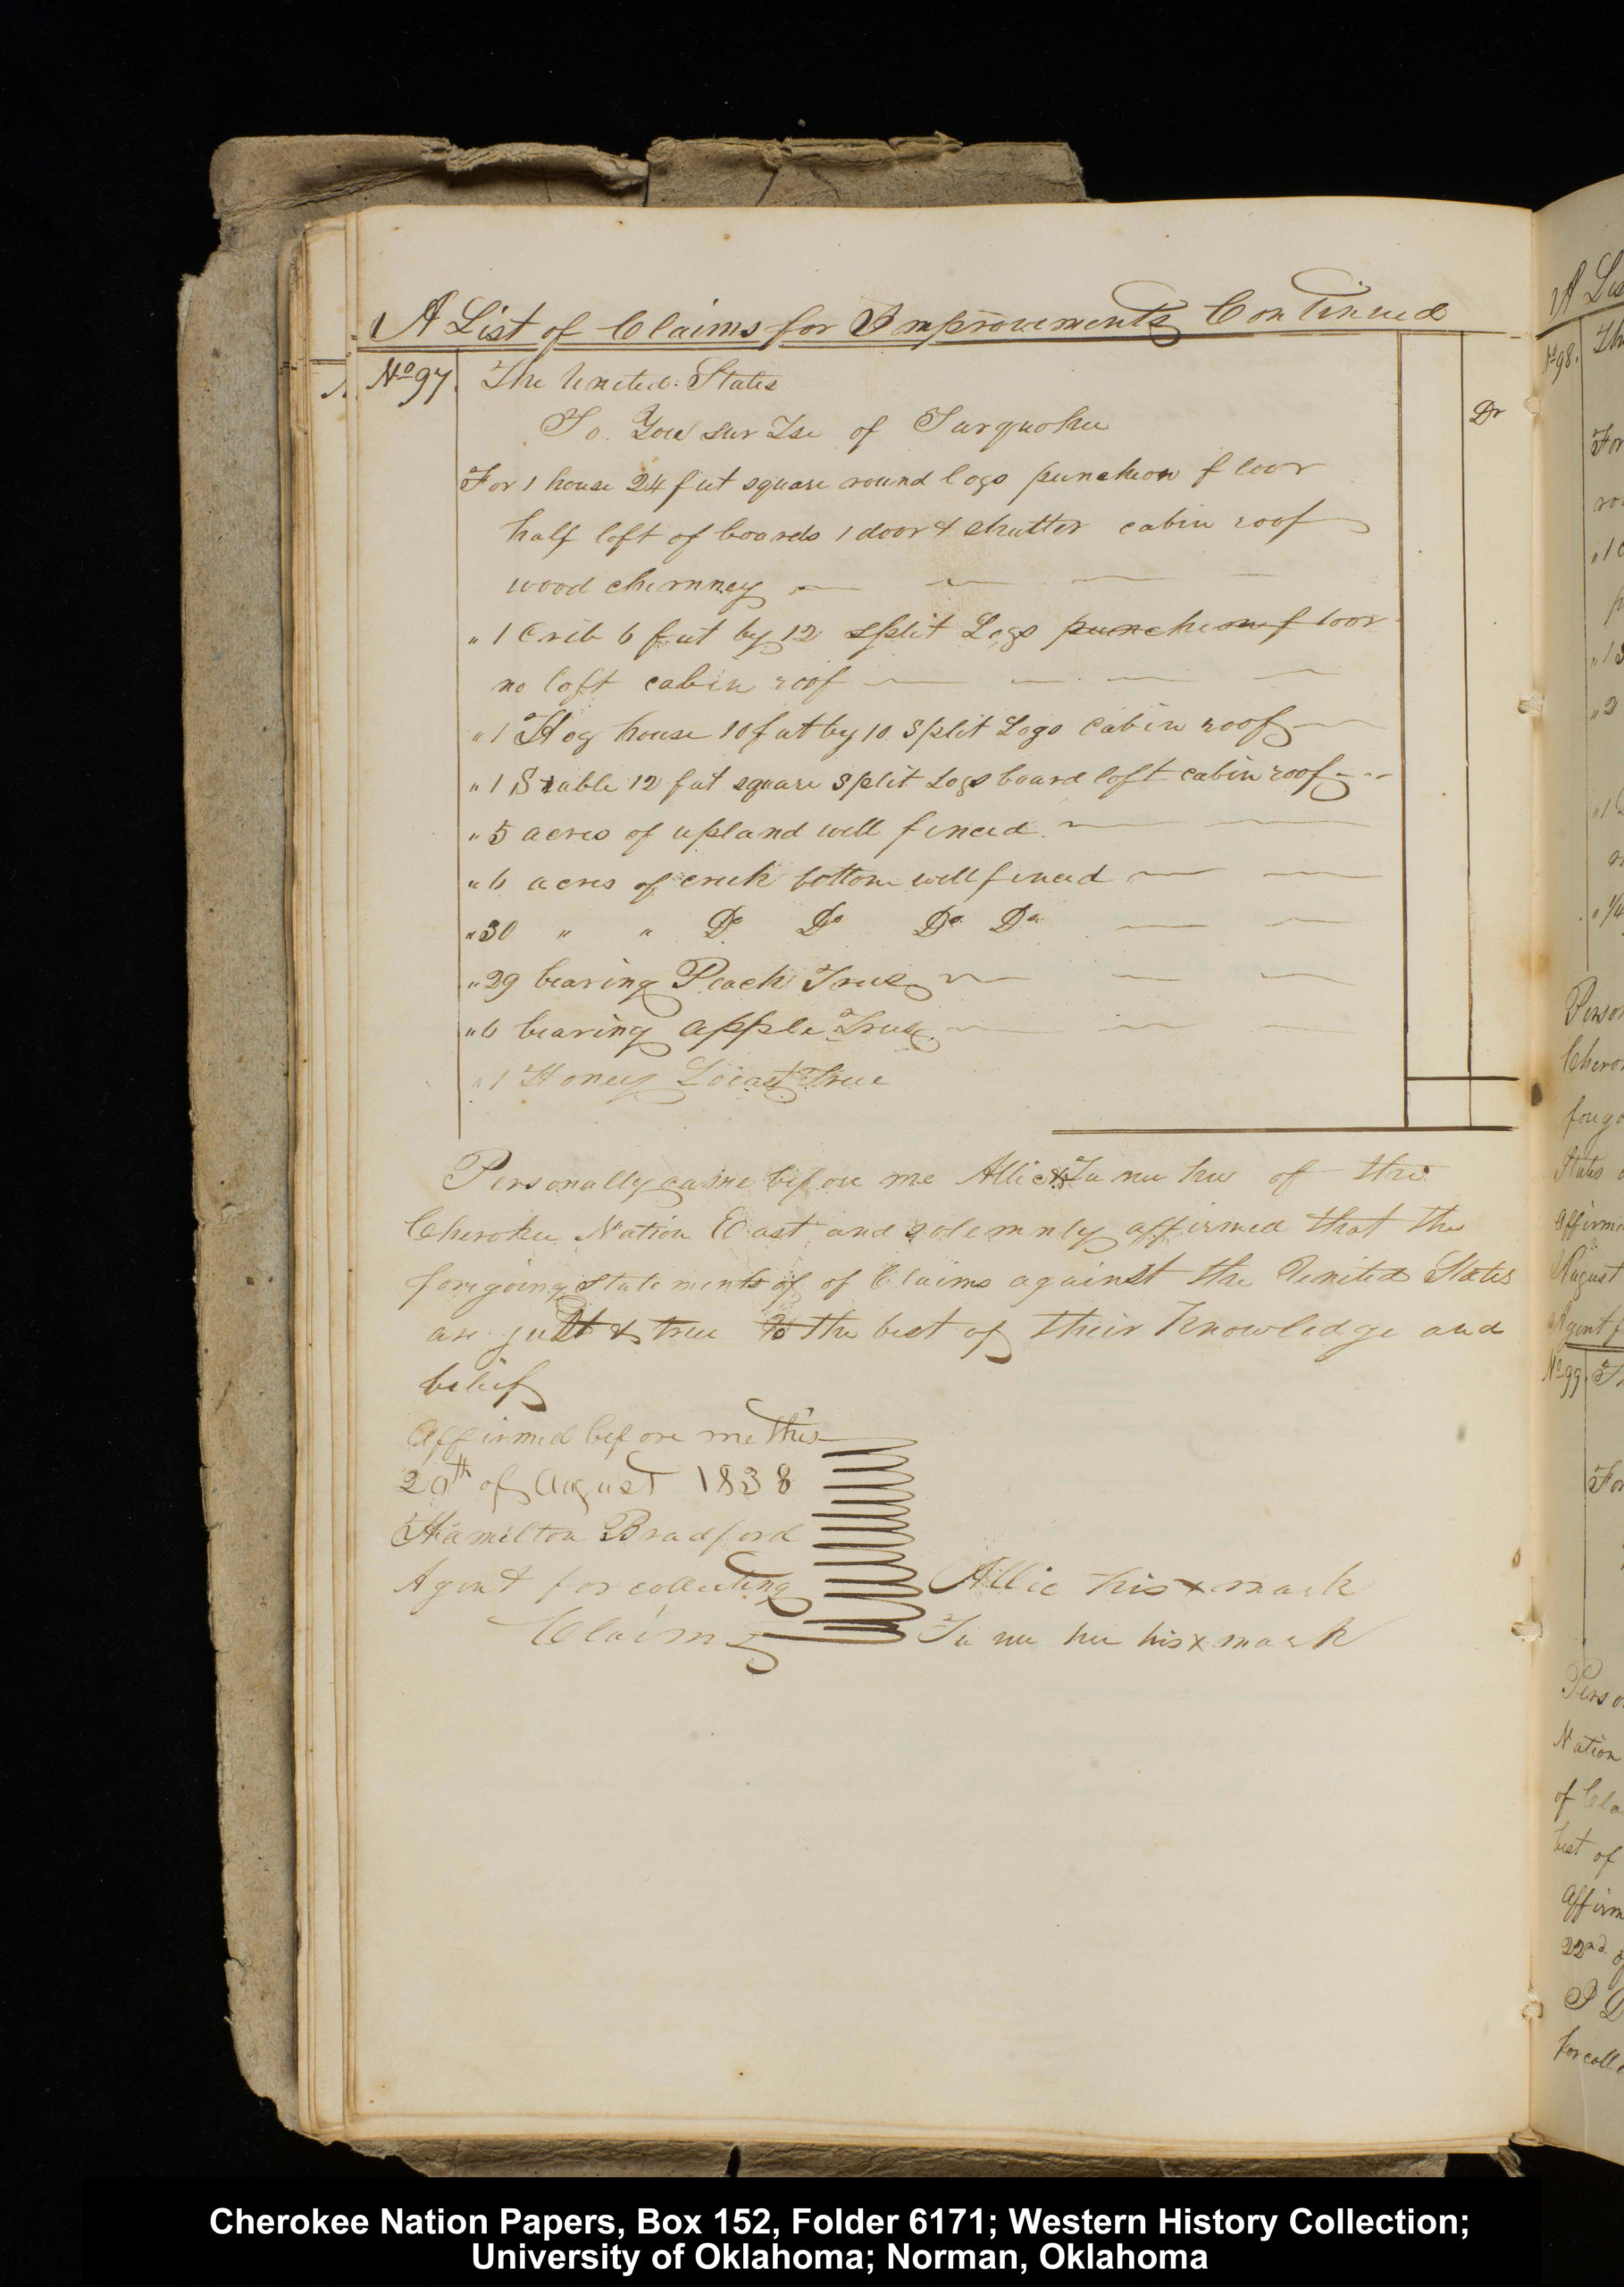 A List of Claims for Improvements Continued
No 97. The United States
Dr
To You sur Tse of Turquohee
For 1 house 24 feet square round logs puncheon floor
half loft of boards 1 door & shutter cabin roof
wood chimney
" 1 Crib 6 feet by 12 split Logs puncheon floor
no loft cabin roof
" 1 Hog house 10 feet by 10 Split Logs Cabin roof
" 1 Stable 12 feet square Split Logs board loft cabin roof
" 5 acres of upland well fenced
" 6 acres of creek bottom well fenced
" 30 " " Do Do Do Do
" 29 bearing Peach Trees
" 6 bearing apple Trees
" 1 Honey Locast Tree
Personally came before me Allic & Tu nu hee of the
Cherokee Nation East and solemnly affirmed that the
foregoing statements of of Claims against the United States
are just & true to the best of their Knowledge and
belief
Affirmed before me this
20th of August 1838
Hamilton Bradford
Agent for collecting
Claims
Allic his x mark
Tu nu hee his x mark
A Lis
No 98.
For
" 1
" 2
Person
Chero
forego
States
affirm
August
Agent f
No 99.
For
Perso
Nation
of Cla
best of
affirm
22nd of
for colle
Cherokee Nation Papers, Box 152, Folder 6171; Western History Collection;
University of Oklahoma; Norman, Oklahoma